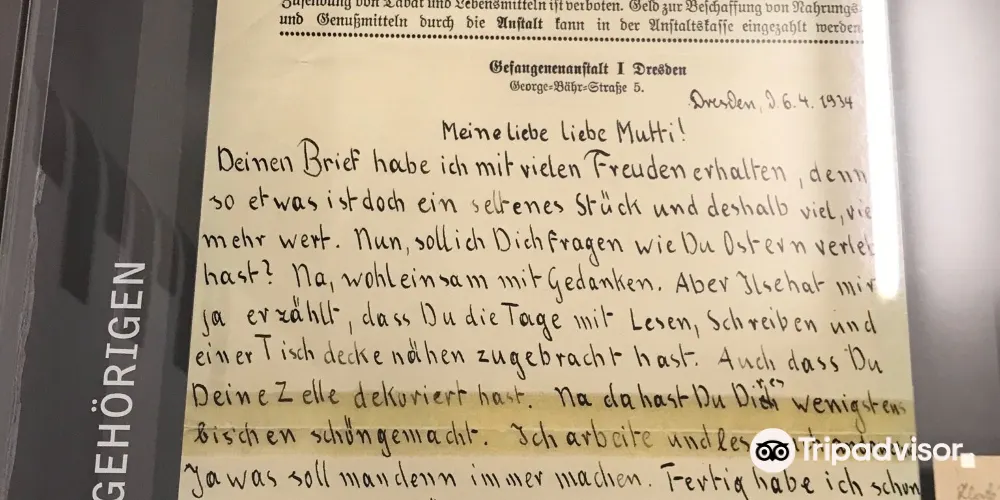 Zusendung von Tabak und Lebensmitteln ist verboten. Geld zur Beschaffung von Nahrungs-
und Genußmitteln durch die Anstalt kann in der Anstaltskasse eingezahlt werden
Gefangenenanstalt I Dresden
George-Bähr-Straße 5.
Dresden, d. 6.4.1934
Meine liebe liebe Mutti!
Deinen Brief habe ich mit vielen Freuden erhalten, denn
so etwas ist doch ein seltenes Stück und deshalb viel, vie
mehr wert. Nun, soll ich Dich fragen wie Du Ostern verleb
hast? Na, wohl einsam mit Gedanken. Aber Ilse hat mir
ja erzählt, dass Du die Tage mit Lesen, Schreiben und
einer Tischdecke nähen zugebracht hast. Auch dass Du
Deine Zelle dekoriert hast. Na da hast Du Dir es wenigstens
bischen schön gemacht. Ich arbeite und les
Ja was soll man denn immer machen. Fertig habe ich schon
GEHÖRIGEN
Tripadvisor